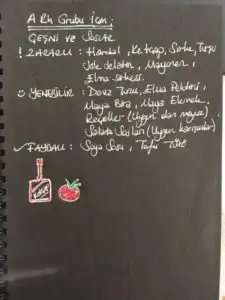 A Rh Grubu İçin;
ÇEŞNİ VE SOSLAR
! ZARARLI : Hardal, Ketçap, Sirke, Turşu
Jelatin, Mayonez,
Elma sirkesi.
YENEBİLİR : Deniz Tuzu, Elma Pektini,
Maya Bira, Maya Ekmek,
Reçeller (Uygun olan meyve),
Salata Sosları (Uygun karışımlar)
✓ FAYDALI : Soya Sosu, Tofu